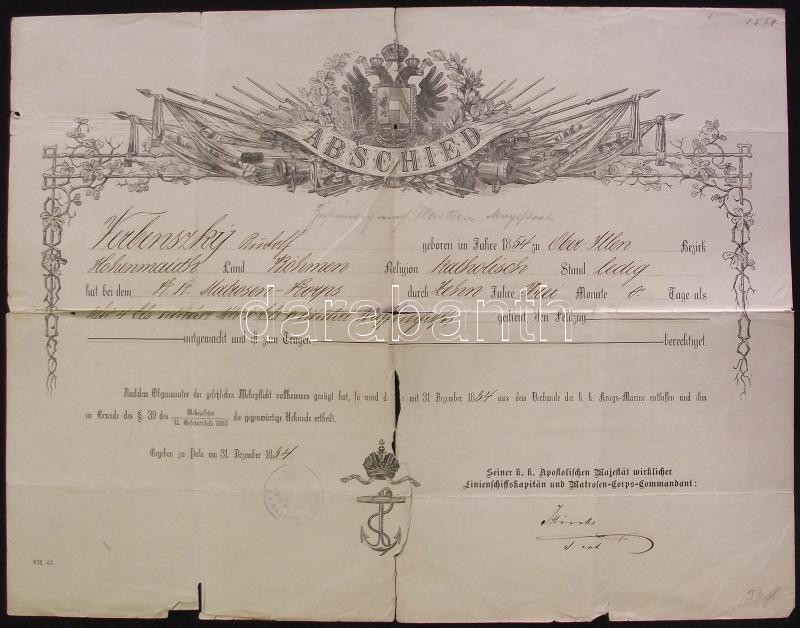 1558
ABSCHIED
Verbenszky Rudolf geboren im Jahre 1854 zu Ober Bezirk
Hohenmauth Land Böhmen Religion katholisch Stand ledig
hat bei dem K. K. Matrosen-Corps durch Zehn Jahre drei Monate 0. Tage als
gedient den Feldzug
mitgemacht und ist zum Tragen berechtiget.
darabanth
Nachdem Obgenannter der gesetzlichen Wehrpflicht vollkommen genügt hat, so wird mit 31. Dezember 1884 aus dem Verbande der k. k. Kriegs-Marine entlassen und ihm
im Grunde des §. 39 des Wehrgesetzes die gegenwärtige Urkunde ertheilt.
Gegeben zu Pola am 31. Dezember 1884
Seiner k. k. Apostolischen Majestät wirklicher
Linienschiffskapitän und Matrosen-Corps-Commandant:
VII. 67.